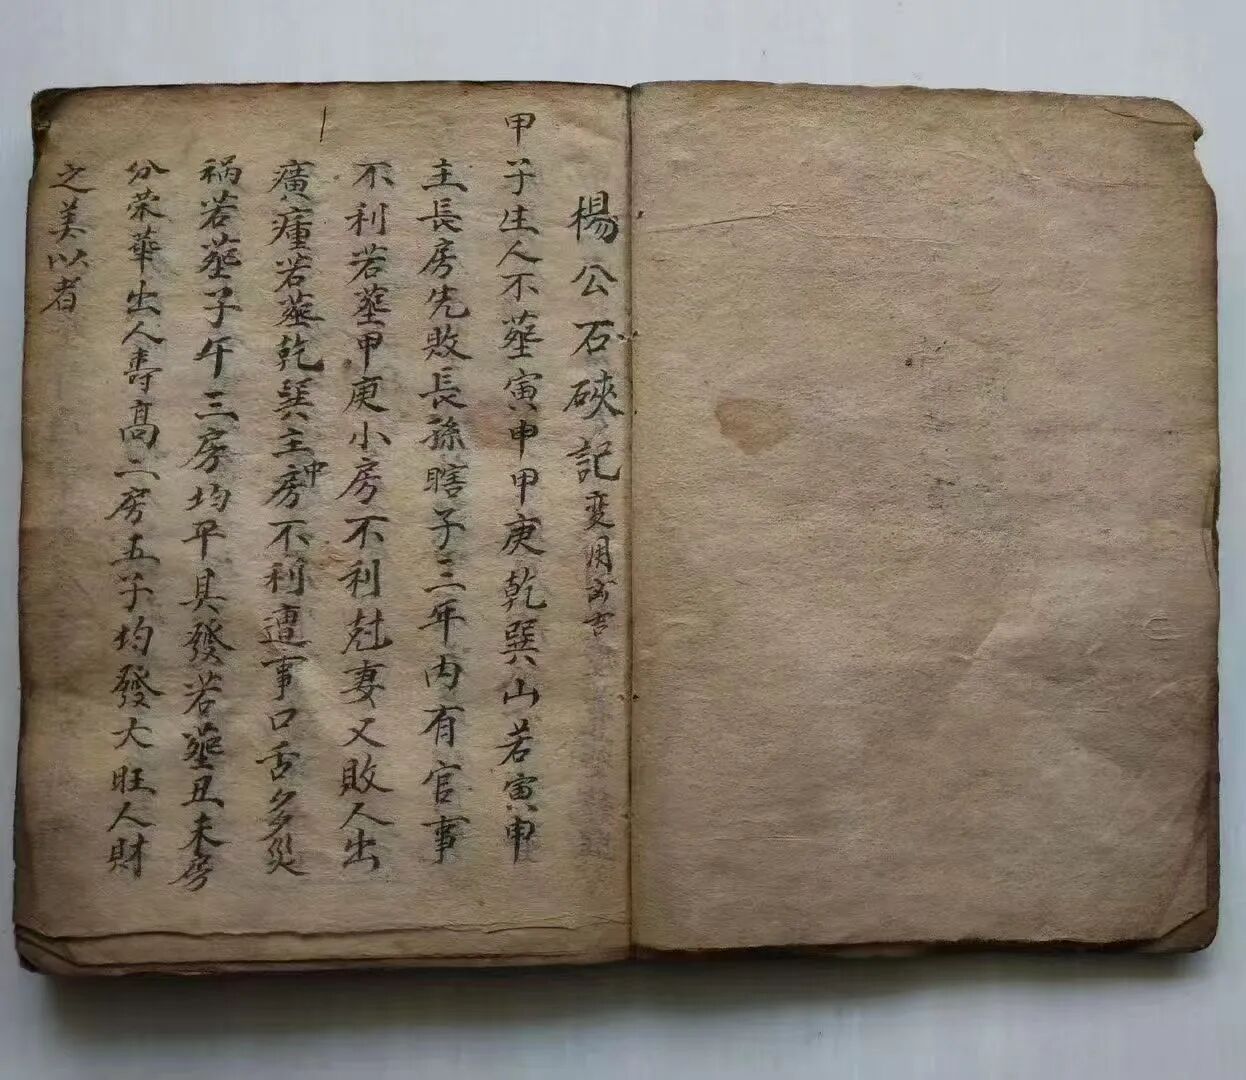 楊公石硤記 变用玄言
甲子生人不塟寅申甲庚乾巽山若寅申
主長房先敗長孫瞎子三年內有官事
不利若塟甲庚小房不利尅妻又敗人出
癀瘇若塟乾巽主中房不利遭事口舌多災
禍若塟子午三房均平具發若塟丑未房
分荣華出人壽高二房五子均發大旺人財
之美以者